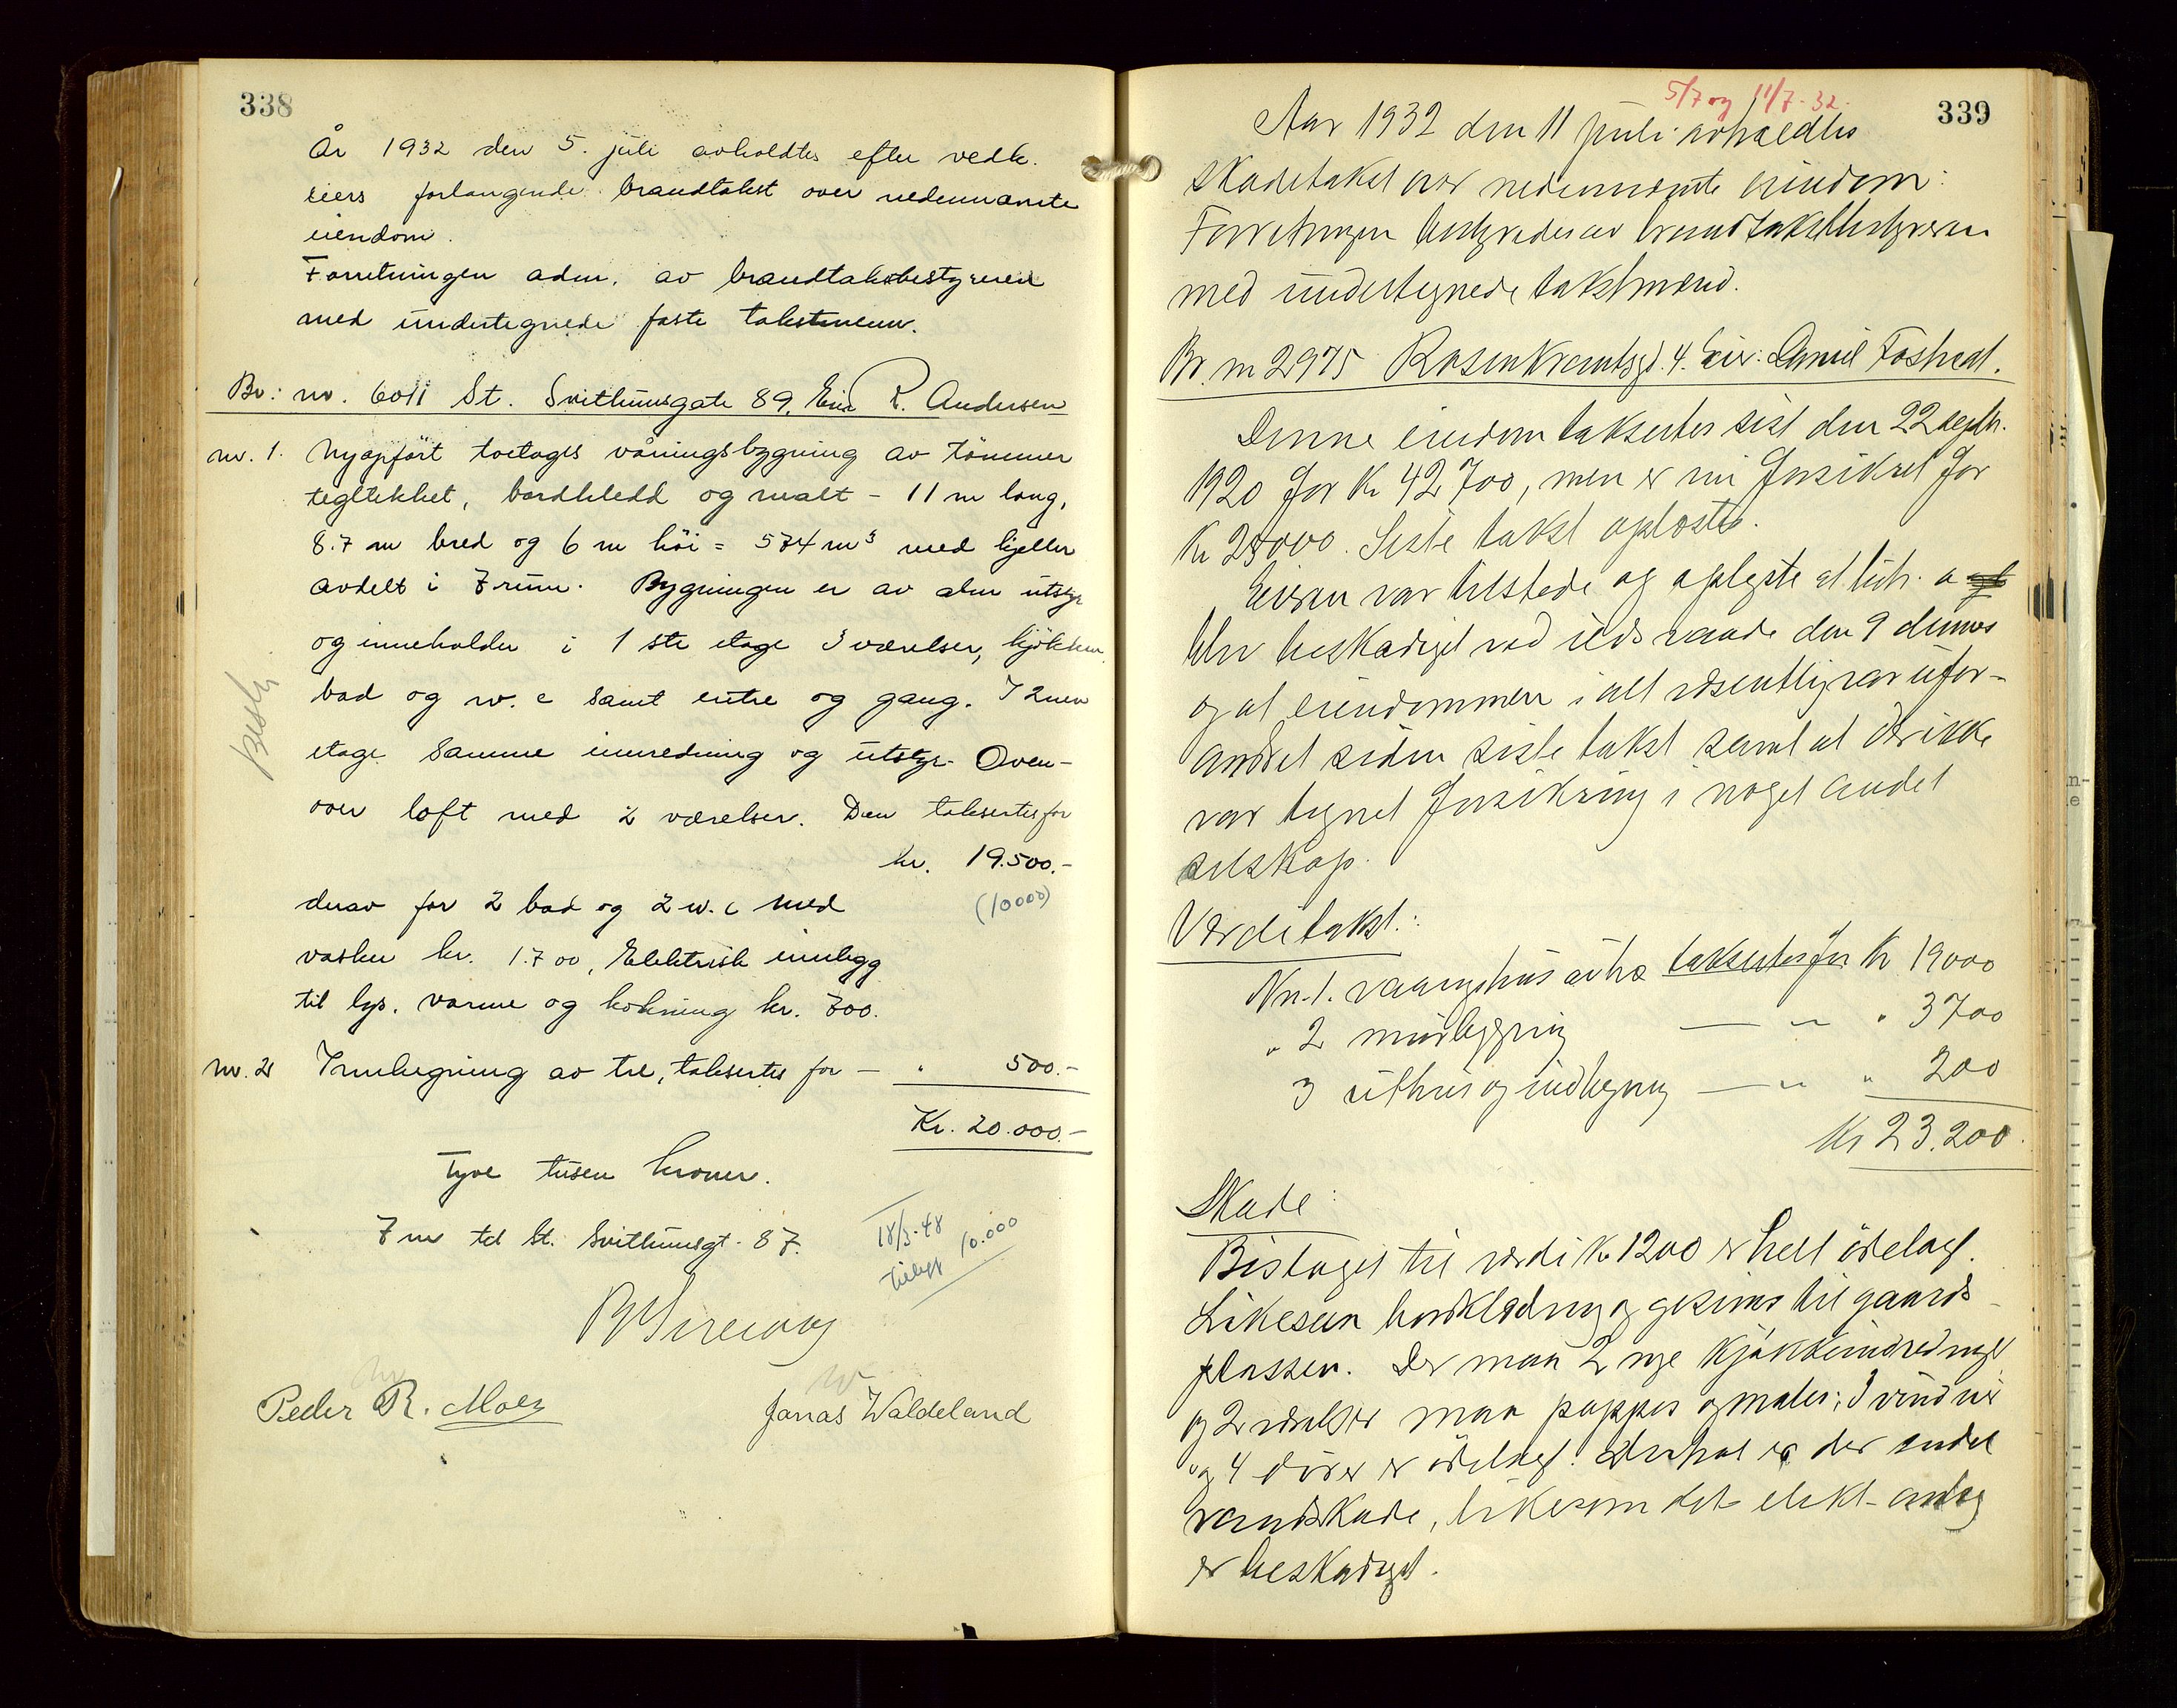 338
År 1932 den 5. juli avholdtes efter vedk.
eiers forlangende brandtakst over nedennævnte
eiendom.
Forretningen adm. av brandtakstbestyreren
med undertegnede faste takstmenn.
Br: nr. 6011 St. Svithunsgate 89. Eier R. Andersen
nr. 1. Nyopført toetages våningsbygning av tømmer
tegltekket, bordkledd og malt - 11 m lang,
8.7 m bred og 6 m høi = 574 m³ med kjeller
avdelt i 7 rum. Bygningen er av alm utstyr
og inneholder i 1ste etage 3 værelser, kjøkken
bad og w.c samt entre og gang. I 2nen
etage samme innredning og utstyr. Oven-
over loft med 2 værelser. Den takseres for
kr. 19.500.-
derav for 2 bad og 2 w.c med (10000)
vasker kr. 1.700, Elektrisk innlegg
til lys, varme og kokning kr. 700.
nr. 2 Innhegning av tre, taksertes for - " 500.-
Kr. 20.000.-
Tyve tusen kroner.
7 m til St. Svithunsgt. 87.
18/3-48
Tillegg 10.000
Peder R. Moen
Jonas Waldeland
5/7 og 11/7-32.
339
Aar 1932 den 11 juli avholdtes
skadetakst over nedennævnte eiendom:
Forretningen bestyredes av brandtakstbestyreren
med undertegnede takstmænd.
Br. nr 2975 Rosenkrantzgt. 4. Eier: Daniel Fosheat.
Denne eiendom taksertes sist den 22 septbr.
1920 for Kr 42700, men er nu forsikret for
Kr 25000. Siste takst oplæstes.
Eieren var tilstede og oplyste at litr. a
blev beskadiget ved ildsvaade den 9 dennes
og at eiendommen i alt væsentlig var ufor-
andret siden siste takst samt at der ikke
var tegnet forsikring i noget andet
selskap.
Værditakst:
Nr. 1. vaaningshus av træ taksertes for Kr 19000
" 2 murbygning — " — " 3700
3 uthus og indhegning — " — " 200
Kr 23.200.
Skade:
Bistaget til værdi Kr 1200 er helt ødelagt.
Likesaa bordklædning og gesims til gaards-
plassen. Der maa 2 nye kjøkkenindredninger
og 2 værelser maa pappes og males; 3 vinduer
og 4 dører er ødelagt. Desuten er der endel
vandskade, likesom det elekt. anlæg
er beskadiget.